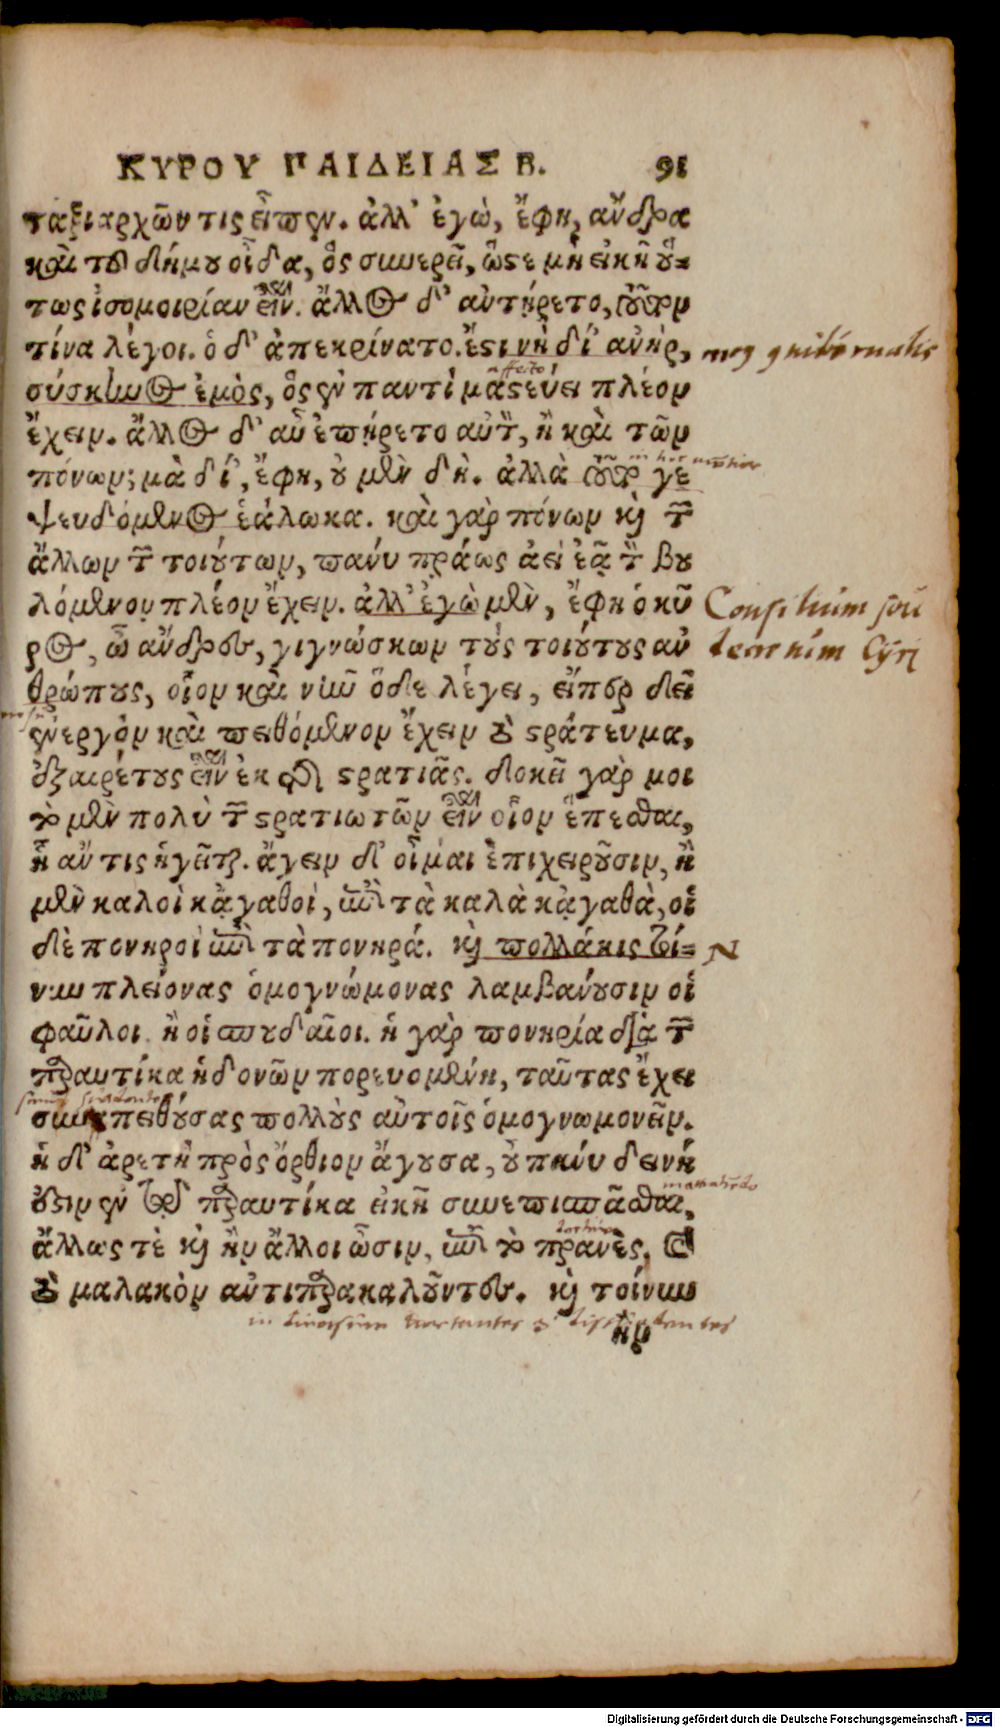 ΚΥΡΟΥ ΠΑΙΔΕΙΑΣ Β. 91
ταξιαρχῶν τις εἶπεν. ἀλλ' ἐγὼ, ἔφη, ἄνδρα
καὶ τοῦ δήμου οἶδα, ὃς συνερεῖ, ὥστε μὴ εἰκῆ οὕ-
τως ἰσομοιρίαν εἶναι. ἄλλος δ' αὐτήρετο, τοῦτον
τίνα λέγοι. ὁ δ' ἀπεκρίνατο. ἔστι νὴ δί' ἀνὴρ,
σύσκηνος ἐμὸς, ὃς ἐν παντὶ μαστεύει πλέον
ἔχειν. ἄλλος δ' αὖ ἐπήρετο αὐτὸν, ἦ καὶ τῶν
πόνων; μὰ δί', ἔφη, οὐ μὲν δὴ. ἀλλὰ τοῦτό γε
ψευδόμενος ἑάλωκα. καὶ γὰρ πόνων καὶ τῶν
ἄλλων τῶν τοιούτων, πάνυ πράως ἀεὶ ἐᾷ τὸν βου
λόμενον πλέον ἔχειν. ἀλλ' ἐγὼ μὲν, ἔφη ὁ κῦ
ρος, ὦ ἄνδρες, γιγνώσκω τοὺς τοιούτους ἀν
θρώπους, οἷον καὶ νῦν ὅδε λέγει, εἴπερ δεῖ
ἐνεργὸν καὶ πειθόμενον ἔχειν τὸ στράτευμα,
ἐξαιρέτους εἶναι ἐκ τῆς στρατιᾶς. δοκεῖ γάρ μοι
τὸ μὲν πολὺ τῶν στρατιωτῶν εἶναι οἷον ἕπεσθαι,
ᾗ ἄν τις ἡγῆται. ἄγειν δ' οἶμαι ἐπιχειροῦσιν, οἱ
μὲν καλοὶ κἀγαθοὶ, ἐπὶ τὰ καλὰ κἀγαθὰ, οἱ
δὲ πονηροὶ ἐπὶ τὰ πονηρά. καὶ πολλάκις τοί- N
νυν πλείονας ὁμογνώμονας λαμβάνουσιν οἱ
φαῦλοι ἢ οἱ σπουδαῖοι. ἡ γὰρ πονηρία διὰ τῶν
παραυτίκα ἡδονῶν πορευομένη, ταύτας ἔχει
συμπειθούσας πολλοὺς αὐτοῖς ὁμογνωμονεῖν.
ἡ δ' ἀρετὴ πρὸς ὄρθιον ἄγουσα, οὐ πάνυ δεινή
ἐστιν ἐν τῷ παραυτίκα εἰκῆ συνεπισπᾶσθαι,
ἄλλως τὲ καὶ ἢν ἄλλοι ὦσιν, ἐπὶ τὸ πρανὲς, καὶ
τὸ μαλακὸν ἀντιπαρακαλοῦντες. καὶ τοίνυν
ἢν
Consilium
Cyri
Digitalisierung gefördert durch die Deutsche Forschungsgemeinschaft - DFG